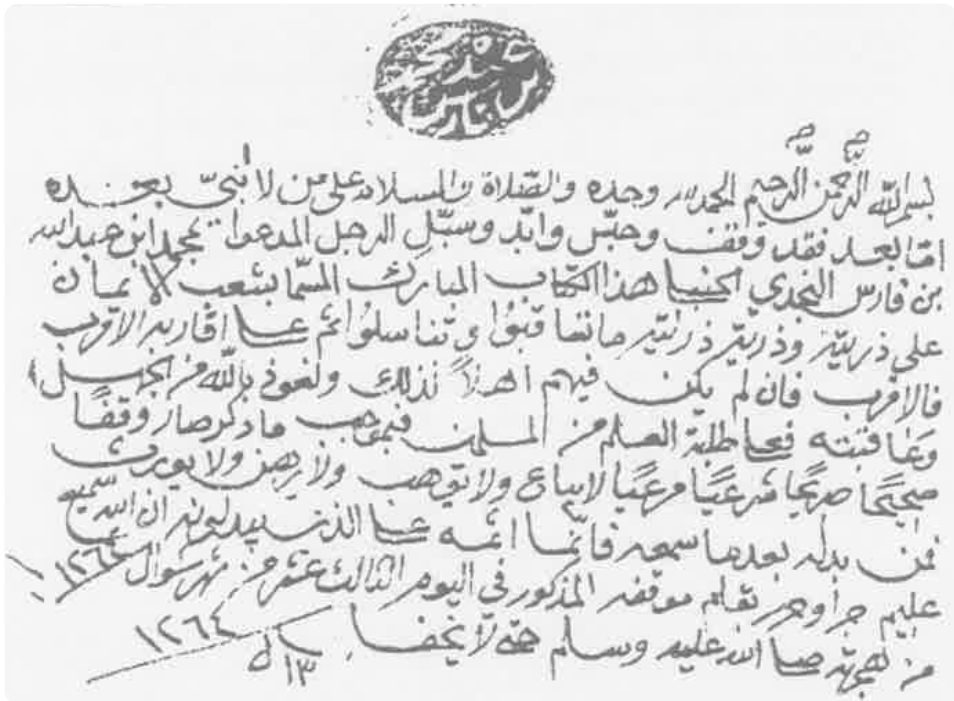 بسم الله الرحمن الرحيم الحمد لله وحده والصلاة والسلام على من لا نبي بعده
اما بعد فقد وقف وحبس وابد وسبل الرجل المدعوا بمحمد ابن عبد الله
بن فارس النجدي هذا الكتاب المبارك المسما بشعب الايمان
على ذريته وذرية ذريته ما تعاقبوا وتناسلوا ثم على اقاربه الاقرب
فالاقرب فان لم يكن فيهم اهلاً لذلك ونعوذ بالله من الجهل
وعاقبته فعلى طلبة العلم من المسلمين فبموجب ما ذكر صار وقفًا
صحيحًا صريحًا شرعيًا مرعيًا لا يباع ولا يوهب ولا يرهن ولا يورث
فمن بدله بعدما سمعه فانما اثمه على الذين يبدلونه ان الله سميع
عليم جرا وحرر بقلم موقفه المذكور في اليوم الثالث عشر من شهر شوال ١٢٦٤
من هجرته صلى الله عليه وسلم حتى لا يخفا
١٣ ل ١٢٦٤